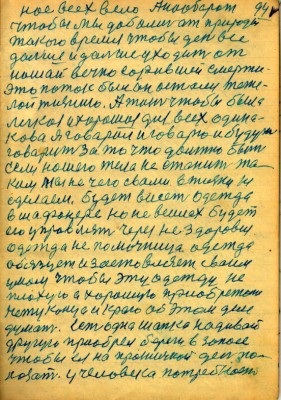 ное всех вело А наоборот 94
чтобы мы добыли от природы
такого время чтобы дел все
дальше и дальше уходит от
нашей вечно смерти
это поток был он остался тяже-
лой жизнию. А так чтобы была
легкой и хорошая для всех одина-
кова Я говорил и говорю и буду
говорить за то что должно быть
если нашего тела не станит та-
ким мы нечего с вами в жизни не
сделаем будет висет одежда
в шафонере но не вешах будет
его управлят через не здоровье
одежда не помочница одежда
обязует и заставляет своим
умом чтобы эту одежду не
плохую а хорошую приобретат
нету конца и краю об этом деле
думат. Сет одна шапка надивай
другую приобрел береги в запасе
чтобы ея на праничной ден по-
казат. у человека потребност